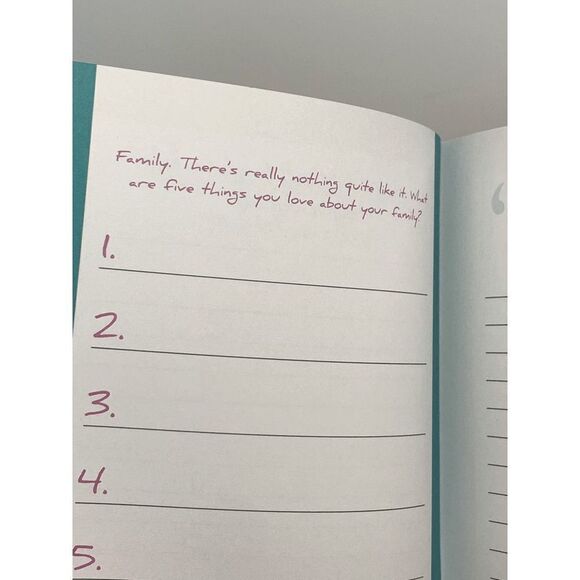 Family. There's really nothing quite like it. What
are five things you love about your family?
1.
2.
3.
4.
5.